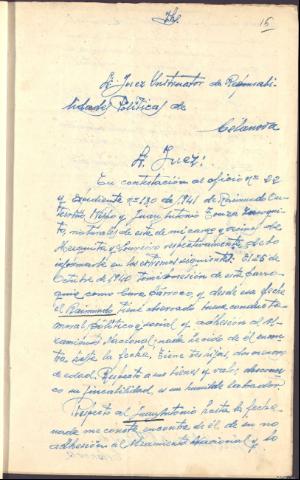 15
Sr. Juez Instructor de Responsabi-
lidades Políticas de
Celanova
Sr. Juez:
En contestación al oficio nº 22
y Expediente nº 130 de 1941 de Raimundo
y Juan Antonio
naturales de este de mi cargo y vecinos de
Mezquita y respectivamente, debo
informarle en los términos siguientes: El 25 de
Octubre de 1940 tomé posesión de esta Parro-
quia como Cura Párroco, y desde esa fecha
el Raimundo tiene observado buena conducta
moral, política y social y adhesión al Mo-
vimiento Nacional, nada he oído de él en con-
tra hasta la fecha, tiene hijas, dos menores
de edad. Respecto a sus bienes y valor, descono-
zco su fincabilidad, es un humilde labrador.
Respecto al Juan Antonio hasta la fecha
nada me consta en contra de él, de su no
adhesión al Movimiento Nacional y lo